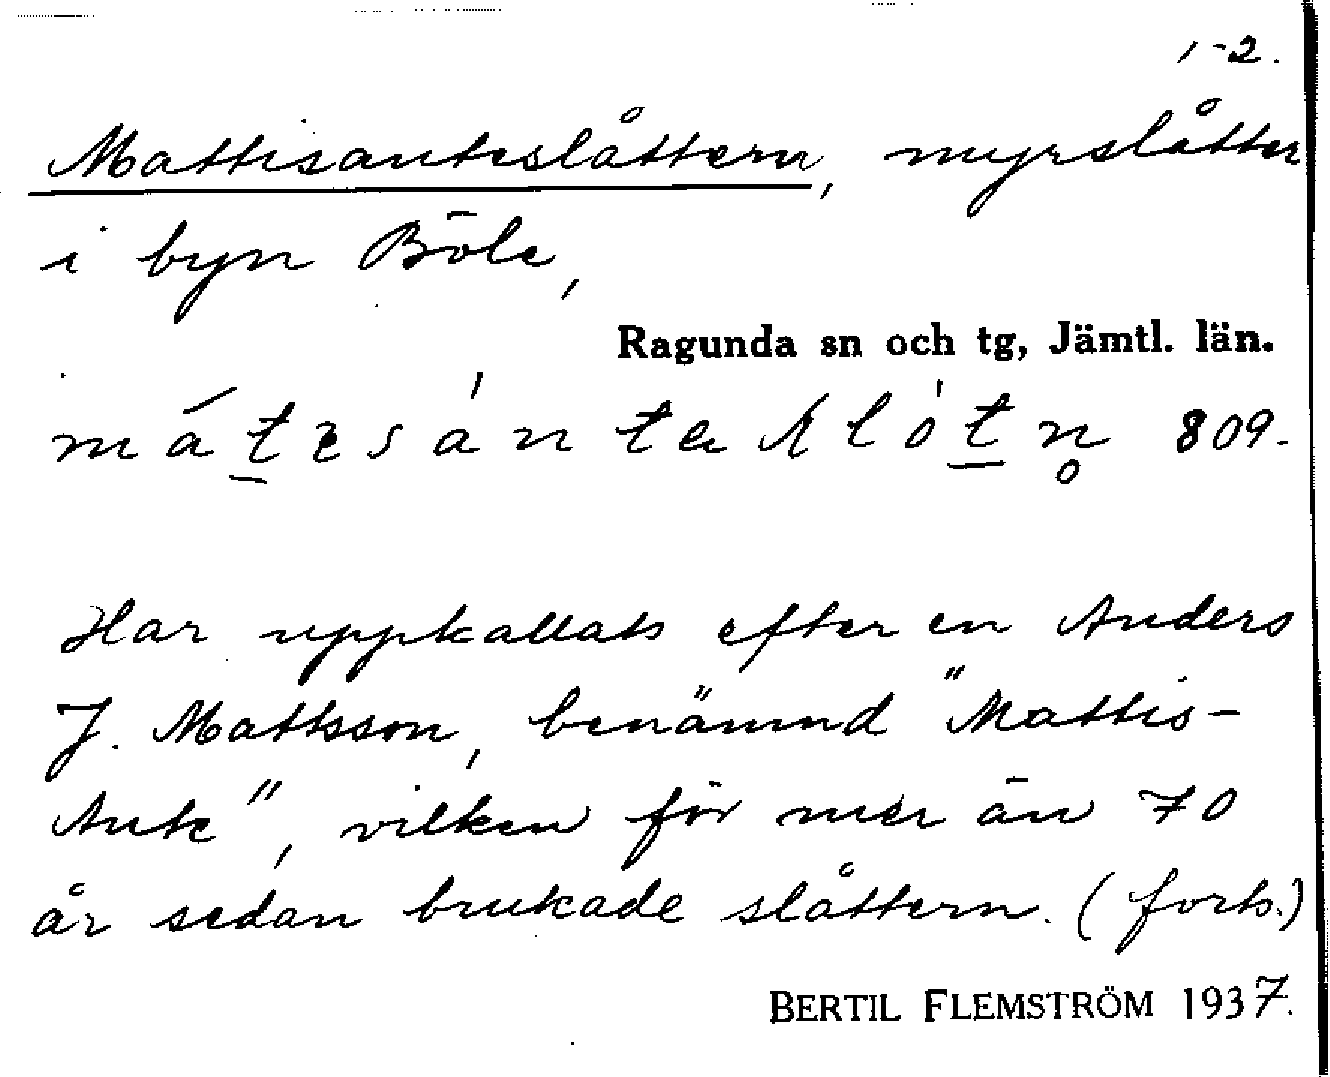 1-2.
Mattisanteslåttern, myrslåtter
i byn Böle,
Ragunda sn och tg, Jämtl. län.
809.
Har uppkallats efter en Anders
J. Mattsson, benämnd "Mattis-
Ante", vilken för mer än 70
år sedan brukade slåttern. (forts.)
BERTIL FLEMSTRÖM 1937.